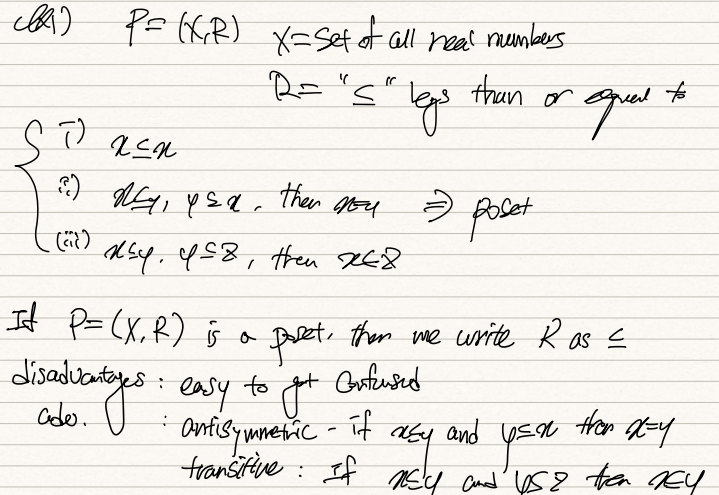 ex1) P = (X,R) X = Set of all real numbers
R = "≤" less than or equal to
i) x ≤ x
ii) x ≤ y, y ≤ x, then x=y ⇒ poset
(iii) x ≤ y, y ≤ z, then x ≤ z
If P = (X, R) is a poset, then we write R as ≤
disadvantages : easy to get Confused
adv. : antisymmetric - if x ≤ y and y ≤ x then x=y
transitive : If x ≤ y and y ≤ z then x ≤ y